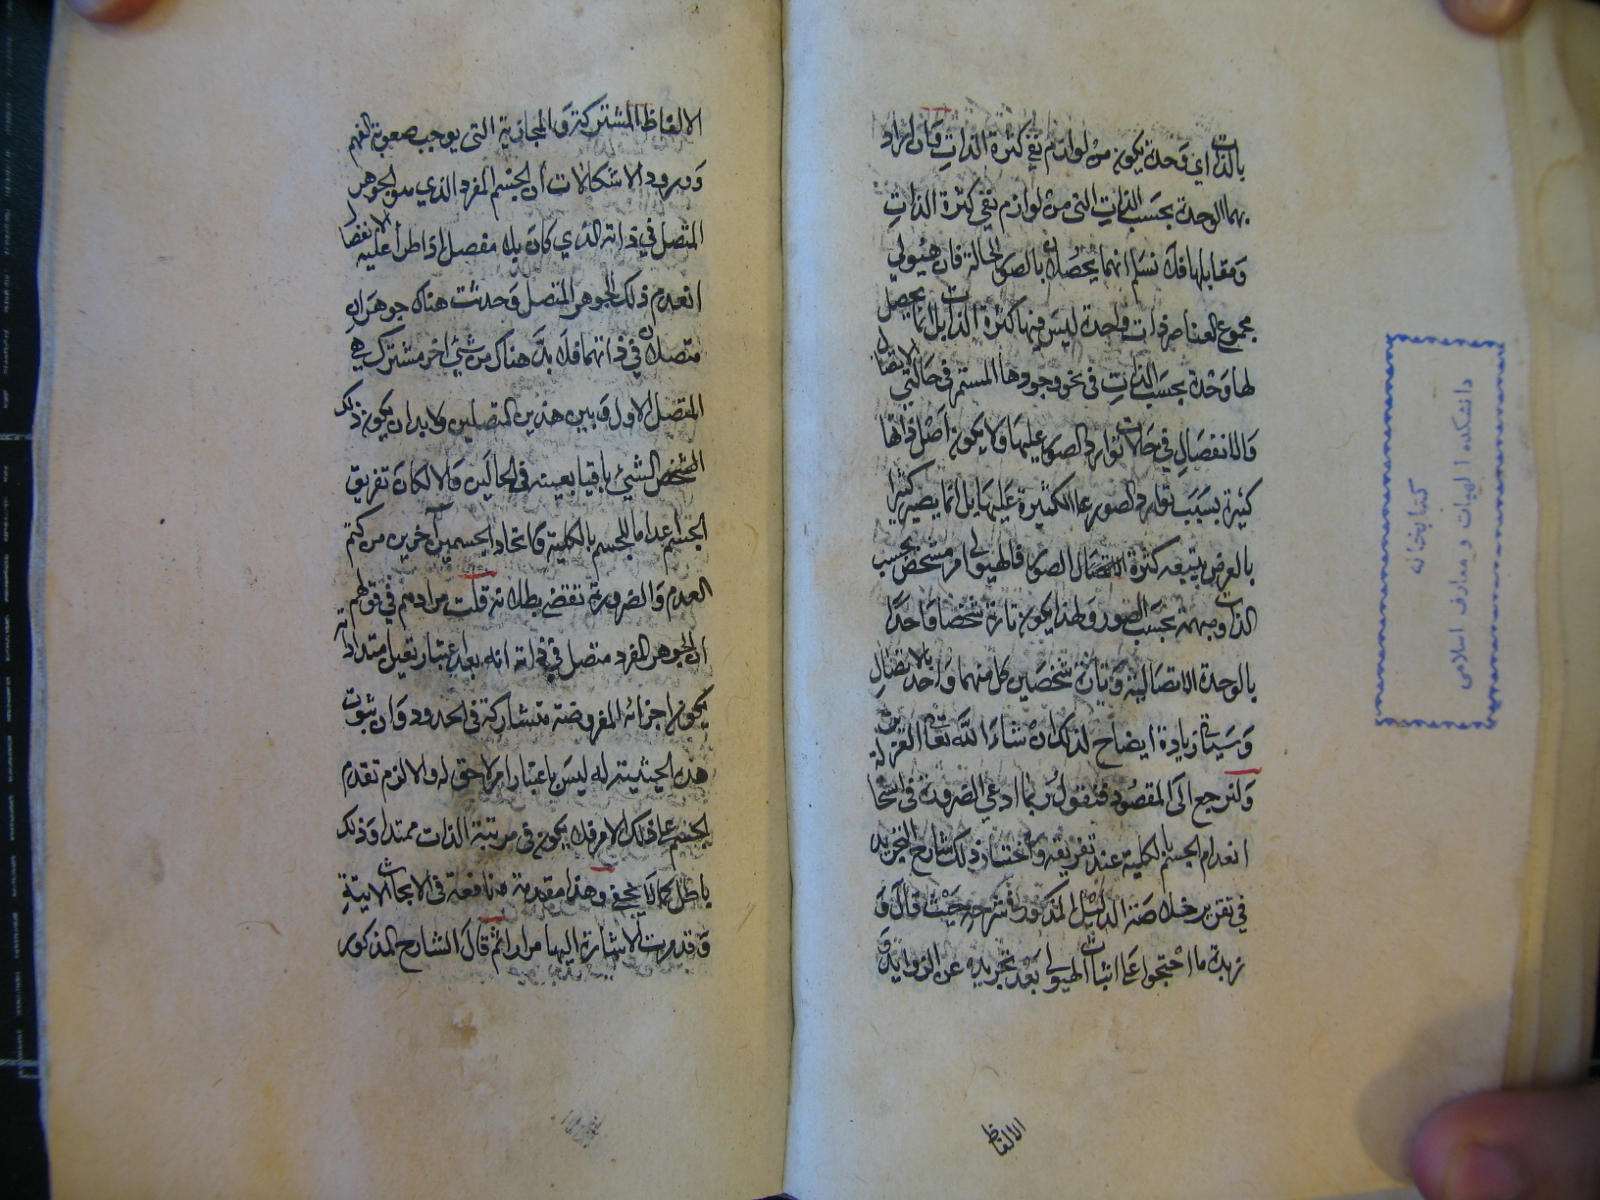 بالذات اي وحدة يكون من لوازم نفي كثرة الذات فان اراد
بهما الوحدة بحسب الذات التى من لوازم نفي كثرة الذات
ومقابلها فلا نسلم انهما يحصلان بالصور الحالة فان هيولي
مجموع العناصر ذات واحدة ليس فيها كثرة الذات بل انما يحصل
لها وحدة بحسب الذات في نحو وجودها المستمر في حالتي الاتصال
والانفصال في حالات توارد الصور عليها ولا يكون اصل ذاتها
كثيرة بسبب توارد الصور المتكثيرة عليها بل انما يصير كثيرا
بالعرض بتبعيه كثرة الصور فالهيولى امر متشخص بحسب
الذات مبهمة بحسب الصور ولهذا يكون تارة شخصا واحدا
بالوحدة الاتصالية وتارة شخصين كل منهما واحد بالاتصال
وسيأتى زيادة ايضاح لذلك ان شاء الله تعالى العزيز
ولنرجع الى المقصود فنقول ربما ادعي الضرورة في استحالة
انعدام الجسم بالكلية عند تفريقه واختار ذلك شارح التجريد
في تقرير خلاصة الدليل المذكور في شرحه حيث قال و
زبدة ما احتجوا على اثبات الهيولى بعد تجريده عن الزوايد و
الالفاظ
الالفاظ المشتركة والمجازية التى يوجب صعوبة الفهم
وورود الاشكالات أن الجسم المفرد الذي هو الجوهر
المتصل في ذاته الذي كان بلا مفصل اذا طرأ عليه الانفصال
انعدم ذلك الجوهر المتصل وحدثت هناك جوهران
متصلان في ذاتهما فلا بد هناك من شيئ اخر مشترك بين
المتصل الاول وبين هذين المتصلين ولا بد ان يكون ذلك
الشيئ باقيا بعينه في الحالين والا لكان تفريق
الجسم اعداما للجسم بالكلية وايجادا لجسمين آخرين من كتم
العدم والضرورة تقضي ببطلانه قلت مرادهم في قولهم
ان الجوهر المفرد متصل في ذاته انه بعد اعتبار تعين امتداداته
يكون اجزائه المفروضة متشاركة في الحدود وان ثبوت
هذه الحيثية له ليس باعتبار امر لاحق له والا لزم تقدم
الجسم على ذلك الامر فلا يكون في مرتبة الذات ممتدا وذلك
باطل كما لا يخفى وهذا مقدمة نافعة في الابحاث الاتية
وقد مرت الاشارة اليها مرارا ثم قال الشارح المذكور
دانشكده الهيات و معارف اسلامى
كتابخانه